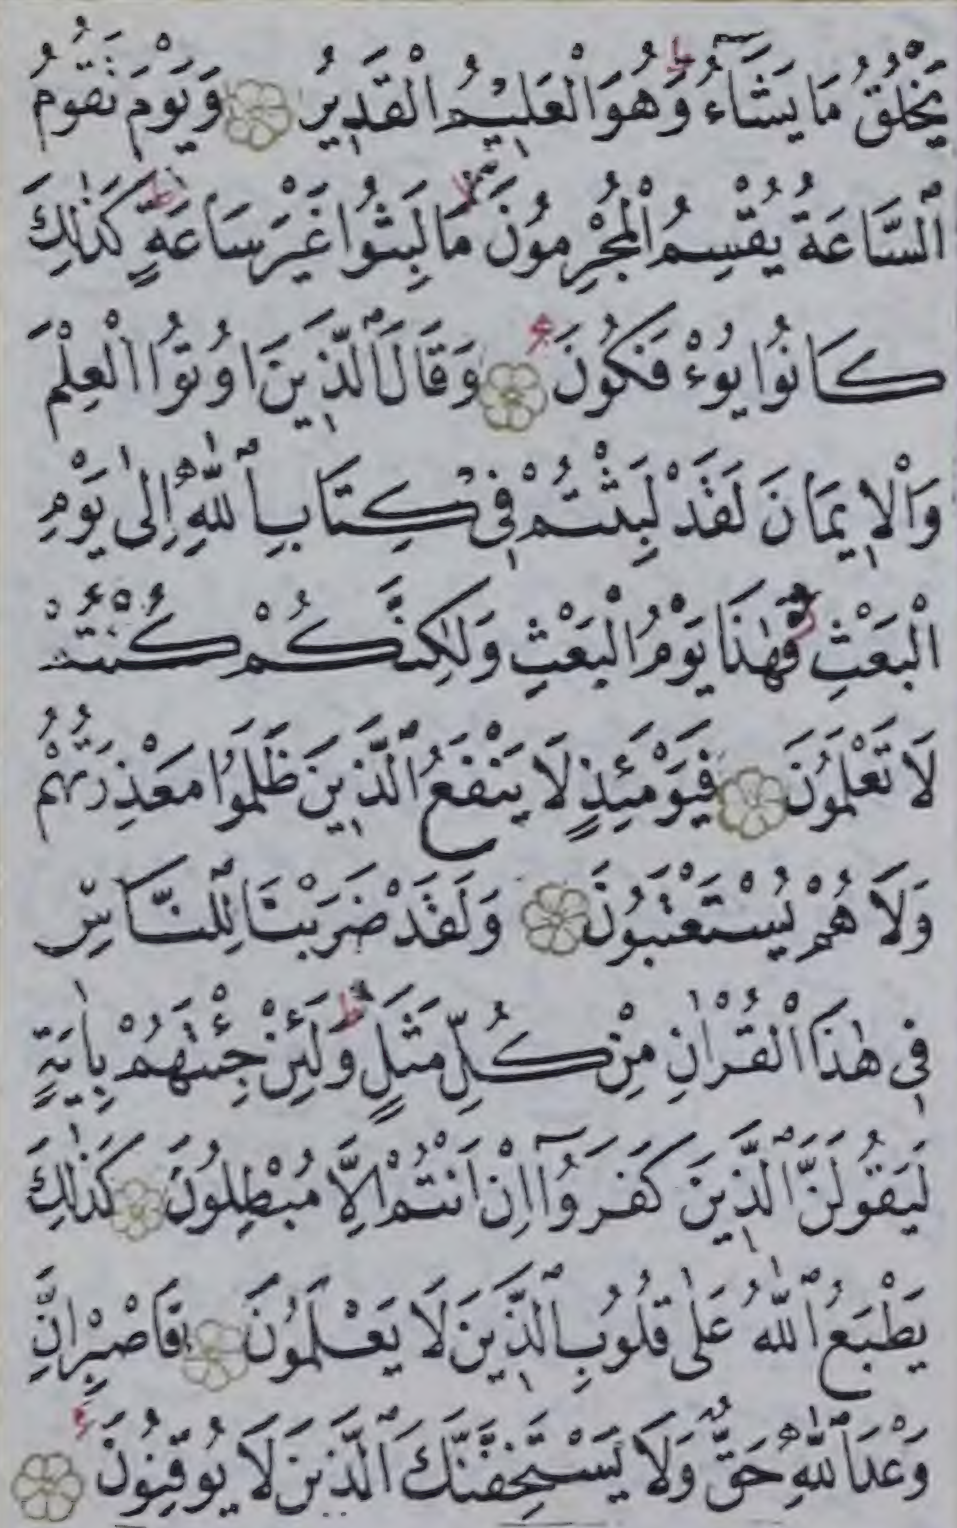 يَخْلُقُ مَا يَشَٓاءُ وَهُوَ الْعَلِيمُ الْقَدِيرُ وَيَوْمَ تَقُومُ
السَّاعَةُ يُقْسِمُ الْمُجْرِمُونَ مَا لَبِثُوا غَيْرَ سَاعَةٍ كَذٰلِكَ
كَانُوا يُوْءْفَكُونَ وَقَالَ الَّذِينَ اُوتُوا الْعِلْمَ
وَالْاِيمَانَ لَقَدْ لَبِثْتُمْ فِي كِتَابِ اللّٰهِ اِلٰى يَوْمِ
الْبَعْثِ فَهٰذَا يَوْمُ الْبَعْثِ وَلٰكِنَّكُمْ كُنْتُمْ
لَا تَعْلَمُونَ فَيَوْمَئِذٍ لَا يَنْفَعُ الَّذِينَ ظَلَمُوا مَعْذِرَتُهُمْ
وَلَا هُمْ يُسْتَعْتَبُونَ وَلَقَدْ ضَرَبْنَا لِلنَّاسِ
فِي هٰذَا الْقُرْاٰنِ مِنْ كُلِّ مَثَلٍ وَلَئِنْ جِئْتَهُمْ بِاٰيَةٍ
لَيَقُولَنَّ الَّذِينَ كَفَرُٓوا اِنْ اَنْتُمْ اِلَّا مُبْطِلُونَ كَذٰلِكَ
يَطْبَعُ اللّٰهُ عَلٰى قُلُوبِ الَّذِينَ لَا يَعْلَمُونَ فَاصْبِرْ اِنَّ
وَعْدَ اللّٰهِ حَقٌّ وَلَا يَسْتَخِفَّنَّكَ الَّذِينَ لَا يُوقِنُونَ